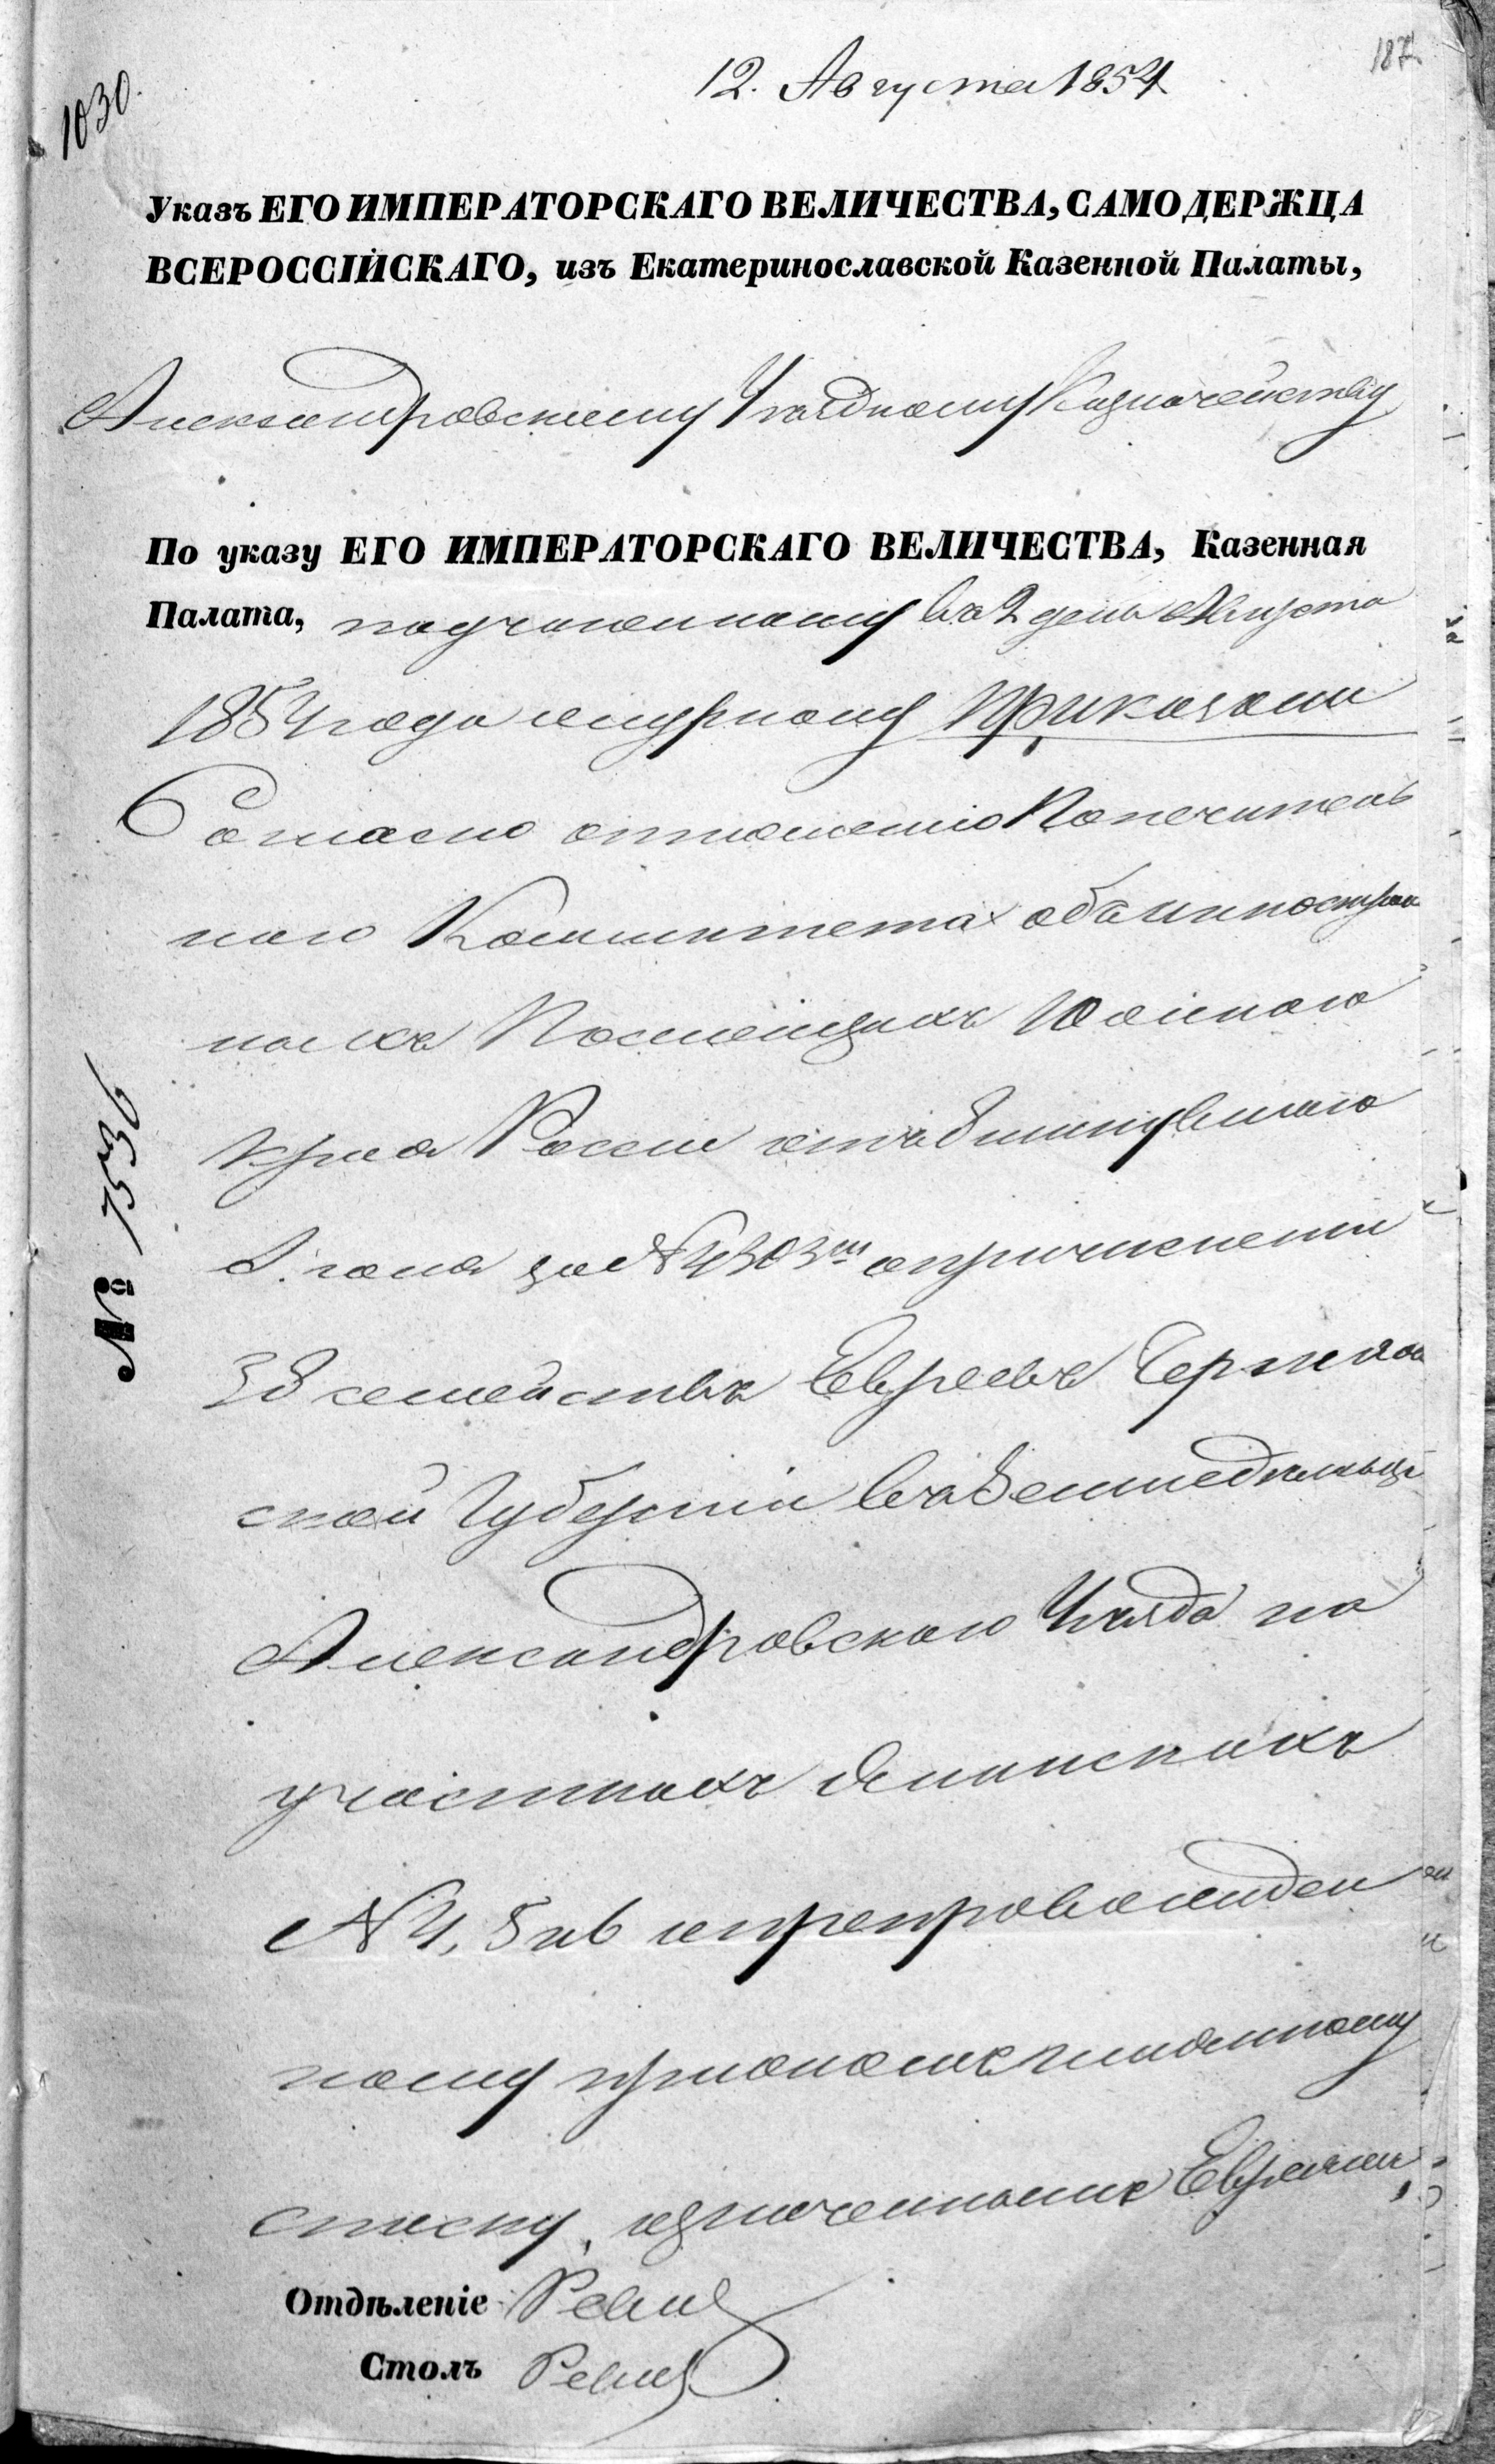 187
12. Августа 1854
1030.
Указъ ЕГО ИМПЕРАТОРСКАГО ВЕЛИЧЕСТВА, САМОДЕРЖЦА
ВСЕРОССІЙСКАГО, изъ Екатеринославской Казенной Палаты,
Александровскому Уѣздному Казначейству
По указу ЕГО ИМПЕРАТОРСКАГО ВЕЛИЧЕСТВА, Казенная
Палата, по учиненному въ 2 день Августа
1854 года журналу Приказали
Согласно отношенію Попечитель
наго Комитета объ иностран
ныхъ Поселенцахъ Южнаго
края Россіи отъ минувшаго
за № 4303 о причисленіи
38 семействъ Евреевъ Чернигов
ской Губерніи въ земледѣльцы
Александровскаго Уѣзда на
участкахъ казенныхъ
№ 4, 5 и 6 и препровожден
ному при ономъ именному
списку, означенныхъ Евреевъ
№ 7536
Отдѣленіе Ревиз
Столъ Ревиз